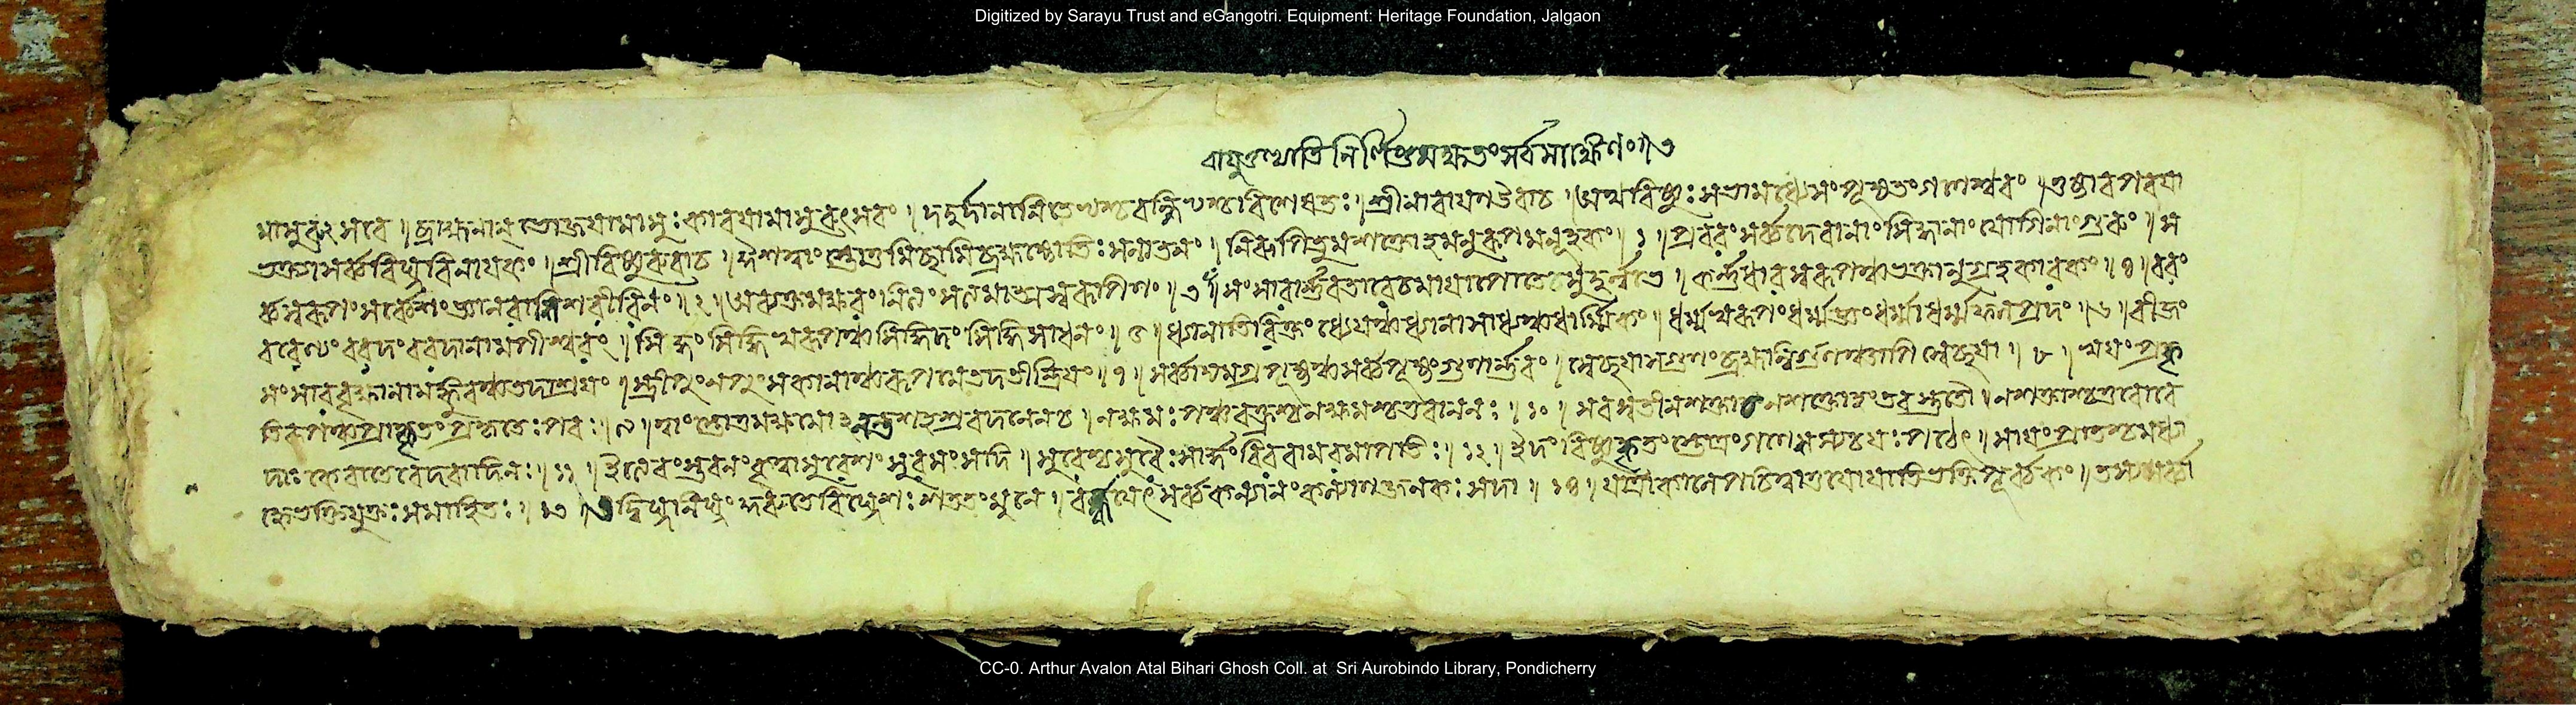 Digitized by Sarayu Trust and eGangotri. Equipment: Heritage Foundation, Jalgaon
বায়ুতুল্যাতি নির্লিপ্তমক্ষতং সর্বসাক্ষিণং ৷৷ ৩
। শ্রীনারায়ণ উবাচ । অথ বিষ্ণুঃ সভামধ্যে সংপূজ্যতং গণেশ্বরং । তুষ্টাব পরয়া
ভক্ত্যা সর্ব্ববিঘ্নবিনায়কং । শ্রীবিষ্ণুরুবাচ । ঈশত্বাং স্তোতুমিচ্ছামি ব্রহ্মজ্যোতিঃ সনাতনং । নিরূপিতুমশক্তোহমনুরূপমনূহকং । ১ । প্রবরং সর্ব্বদেবানাং সিদ্ধানাং যোগিনাং গুরুং । স
র্ব্বস্বরূপং সর্ব্বেশং জ্ঞানরাশিস্বরূপিণং । ২ । অব্যক্তমক্ষরং নিত্যং সত্যমাত্মস্বরূপিণং । ৩ । সংসারার্ণবপারে চ মায়াপোতে সুদুর্ল্লভে । কর্ণধারস্বরূপঞ্চ ভক্তানুগ্রহকারকং । ৪ । বরং
বরেণ্যং বরদং বরদানামপীশ্বরং । সিদ্ধং সিদ্ধিস্বরূপঞ্চ সিদ্ধিদং সিদ্ধিসাধনং । ৫ । ধ্যানাতিরিক্তং ধ্যেয়ঞ্চ ধ্যানাসাধ্যঞ্চ ধার্ম্মিকং । ধর্ম্মস্বরূপং ধর্ম্মজ্ঞং ধর্ম্মাধর্ম্মফলপ্রদং । ৬ । বীজং
সংসারবৃক্ষানামঙ্কুরঞ্চ তদাশ্রয়ং । স্ত্রীপুংনপুংসকানাঞ্চ রূপমেতদতীন্দ্রিয়ং । ৭ । সর্ব্বাদ্যমগ্রপূজ্যঞ্চ সর্ব্বপূজ্যং গুণার্ণবং । স্বেচ্ছয়া সগুণং ব্রহ্ম নির্গুণঞ্চাপি স্বেচ্ছয়া । ৮ । স্বয়ং প্রকৃ
তিরূপঞ্চ প্রাকৃতং প্রকৃতেঃ পরং । ৯ । ত্বাং স্তোতুমক্ষমোহনন্তঃ সহস্রবদনেন চ । নক্ষমঃ পঞ্চবক্ত্রশ্চ নক্ষমশ্চতুরাননঃ । ১০ । সরস্বতী নশক্তা চ নশক্তোহং তব স্তুতৌ । নশক্তাশ্চ চতুর্বে
দাঃ কে বা তে বেদবাদিনঃ । ১১ । ইত্যেবং স্তবনং কৃত্বা সুরেশং সুরসংসদি । সুরেশশ্চ সুরৈঃ সার্দ্ধং বিররাম রমাপতিঃ । ১২ । ইদং বিষ্ণুকৃতং স্তোত্রং গণেশস্য চ যঃ পঠেৎ । সায়ং প্রাতশ্চ মধ্যা
হ্নে ভক্তিযুক্তঃ সমাহিতঃ । ১৩ । তদ্বিঘ্ননিঘ্নং কুরুতে বিঘ্নেশঃ সততং মুনে । বর্দ্ধয়েৎ সর্ব্বকল্যাণং কল্যাণজনকঃ সদা । ১৪ । যাত্রাকালে পঠিত্বাতু যো যাতি ভক্তিপূর্ব্বকং । তস্য সর্ব্বা
CC-0. Arthur Avalon Atal Bihari Ghosh Coll. at Sri Aurobindo Library, Pondicherry